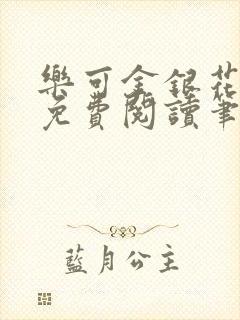 樂可金銀花
免費閱讀筆
藍月公主